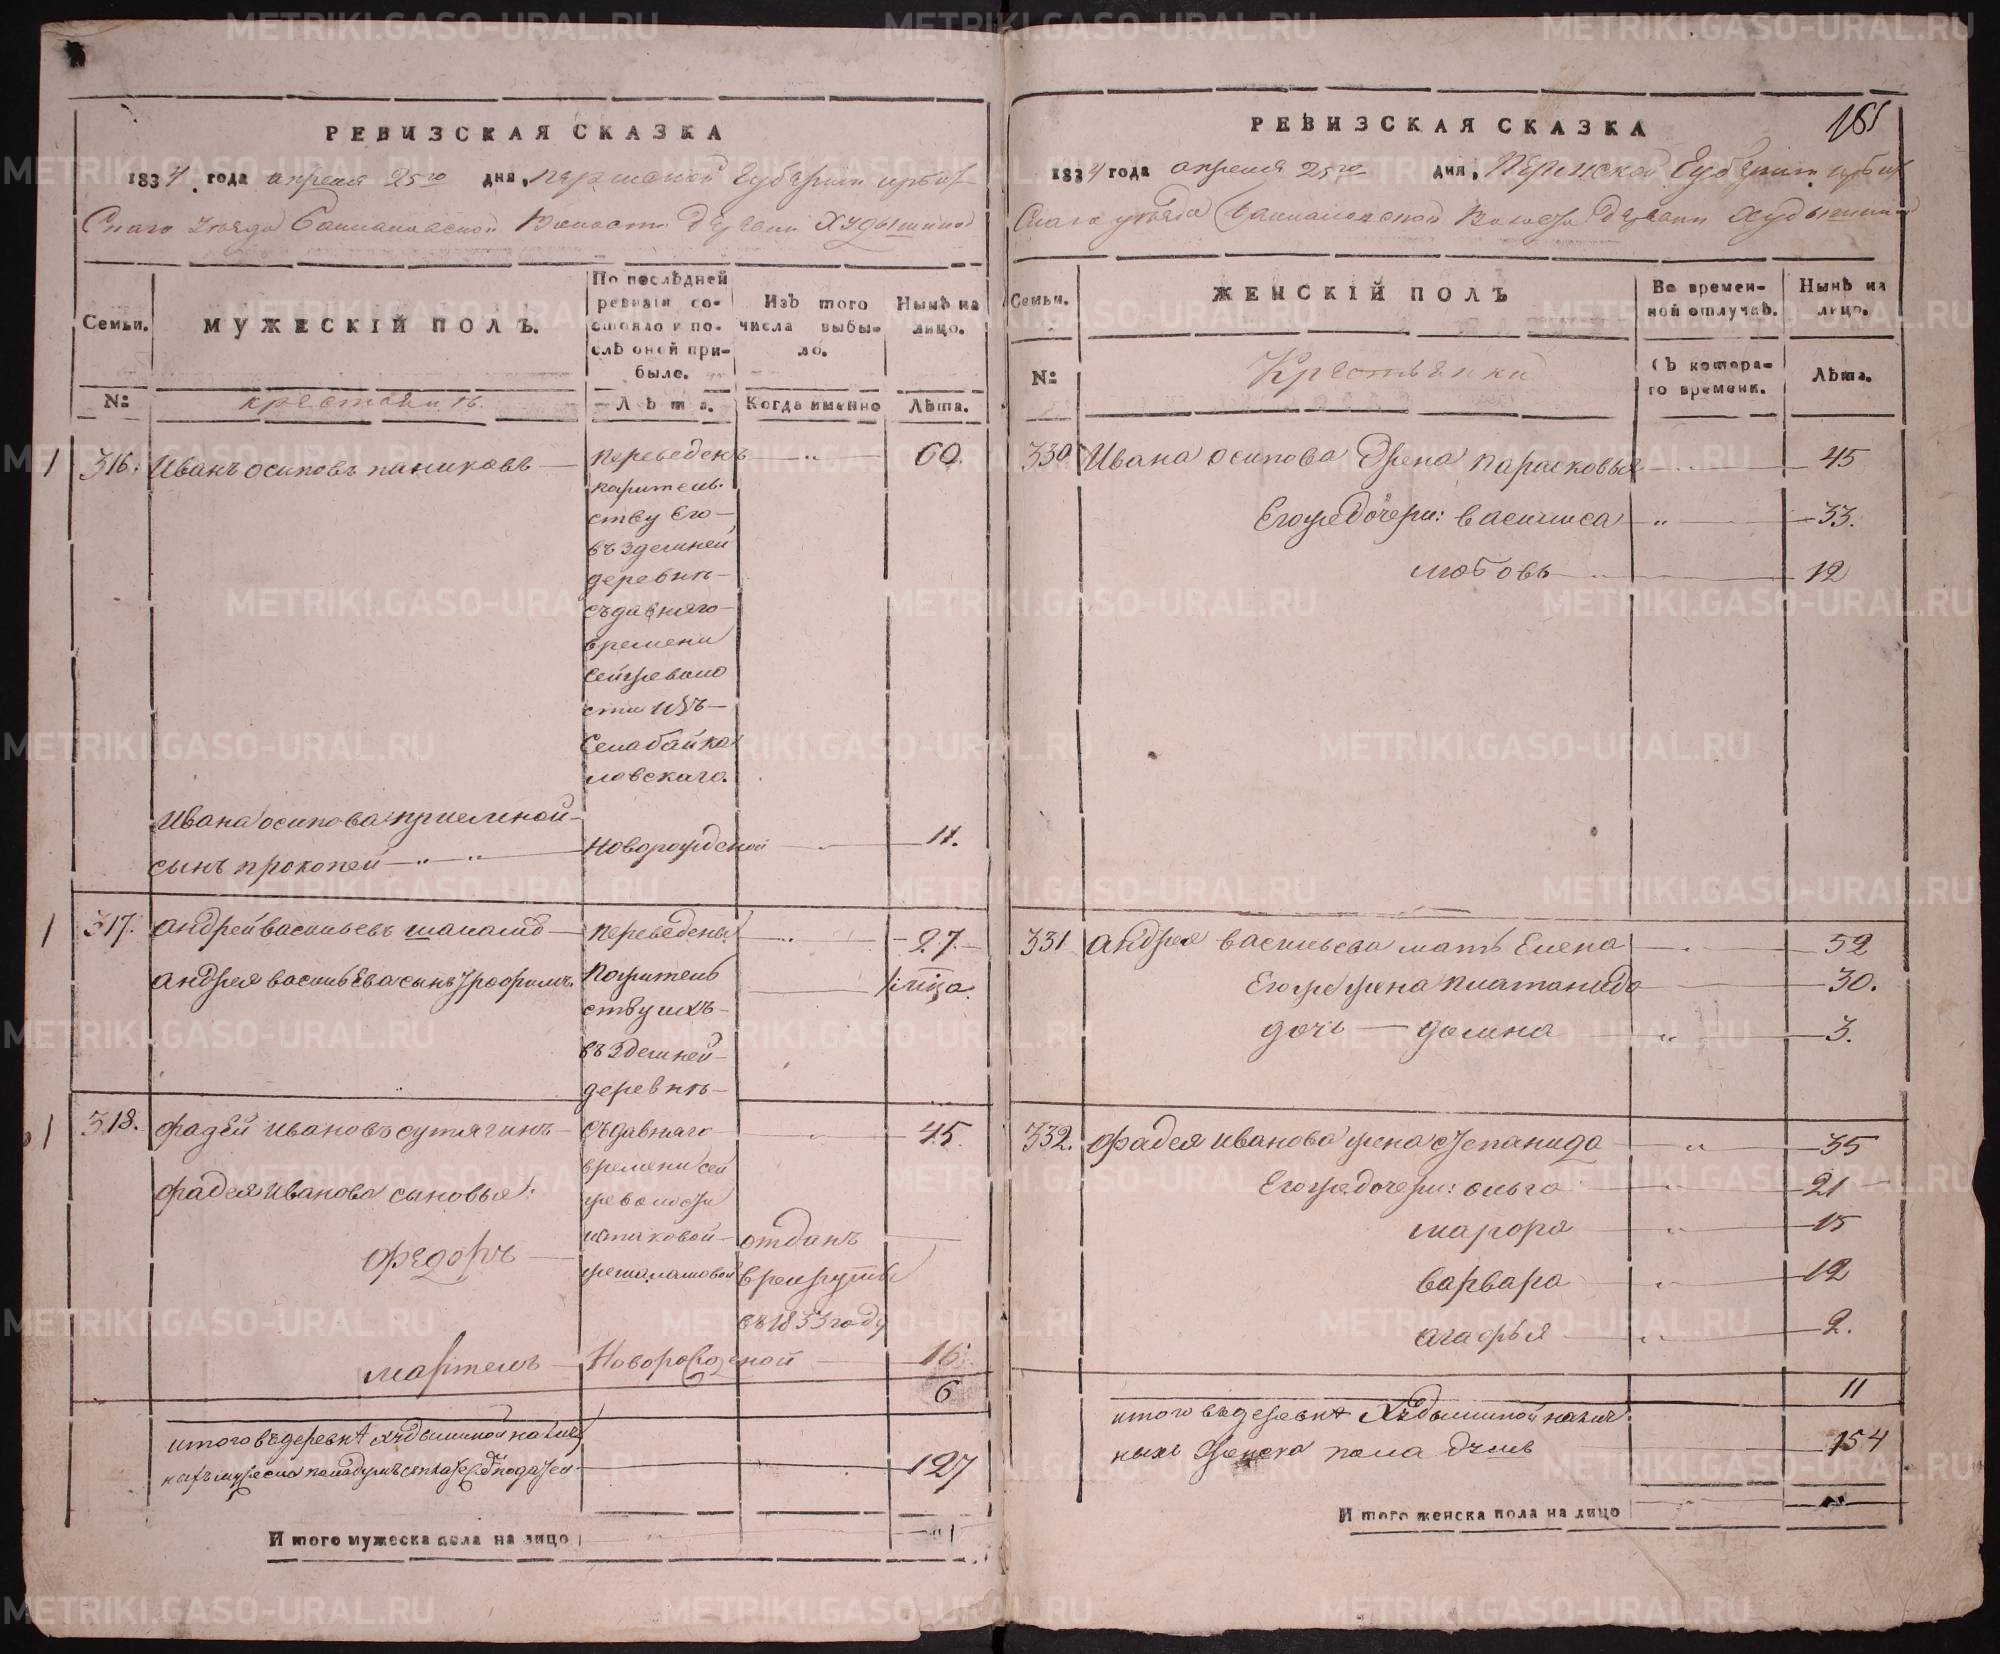 РЕВИЗСКАЯ СКАЗКА
1834 года апреля 25го дня, Пермской Губернии ирбит-
Скаго уезда Волости Деревни Худышиной
Семьи.
МУЖЕСКІЙ ПОЛЪ.
По послѣдней ревизіи состояло и послѣ оной прибыло.
Изъ того числа выбыло.
Нынѣ на лицо.
№
крестьянъ.
Лѣта.
Когда именно
Лѣта.
1 316. Иванъ осиповъ паниковъ — переведенъ — 60.
пожитель-
ству Его —
въ здешней
деревнѣ —
съдавняго —
времени
сейже воло
сти изъ —
Села байка
ловскаго.
Ивана осипова приемной —
сынъ прокопей — новорожденой — 11.
1 317. андрей васильевъ — переведены — 27. —
андрея васильева сынъ трофимъ. пожитель
ству ихъ —
въ здешней —
деревнѣ —
1 318. фадей ивановъ сутягинъ — съдавняго — 45.
времени сей
фадея иванова сыновья: же волости
федоръ — отданъ
врекруты
въ 1833 году
мартемъ — Новорожденой — 16
6
итого въ деревнѣ худышиной налич
127
Итого мужеска пола на лицо
РЕВИЗСКАЯ СКАЗКА
1834 года апреля 25го дня, Пермской Губернии ирбит
Скаго уезда Волости Деревни Худышиной
Семьи.
ЖЕНСКІЙ ПОЛЪ
Во временной отлучкѣ.
Нынѣ на лицо.
№
Крестьянки
Съ котораго времени.
Лѣта.
330 Ивана осипова Жена парасковья — 45
Егоже дочери: василиса — 33.
любовь — 12
331 андрея васильева мать Елена — 52
Егоже жена платанида — 30.
дочь — домна — 3.
332. фадея иванова жена степанида — 35
Егоже дочери: ольга — 21 —
марфа — 15
варвара — 12
агафья — 2.
11
итого въ деревнѣ Худышиной налич.
ныхъ Женска пола душъ 154
Итого женска пола на лицо
METRIKI.GASO-URAL.RU